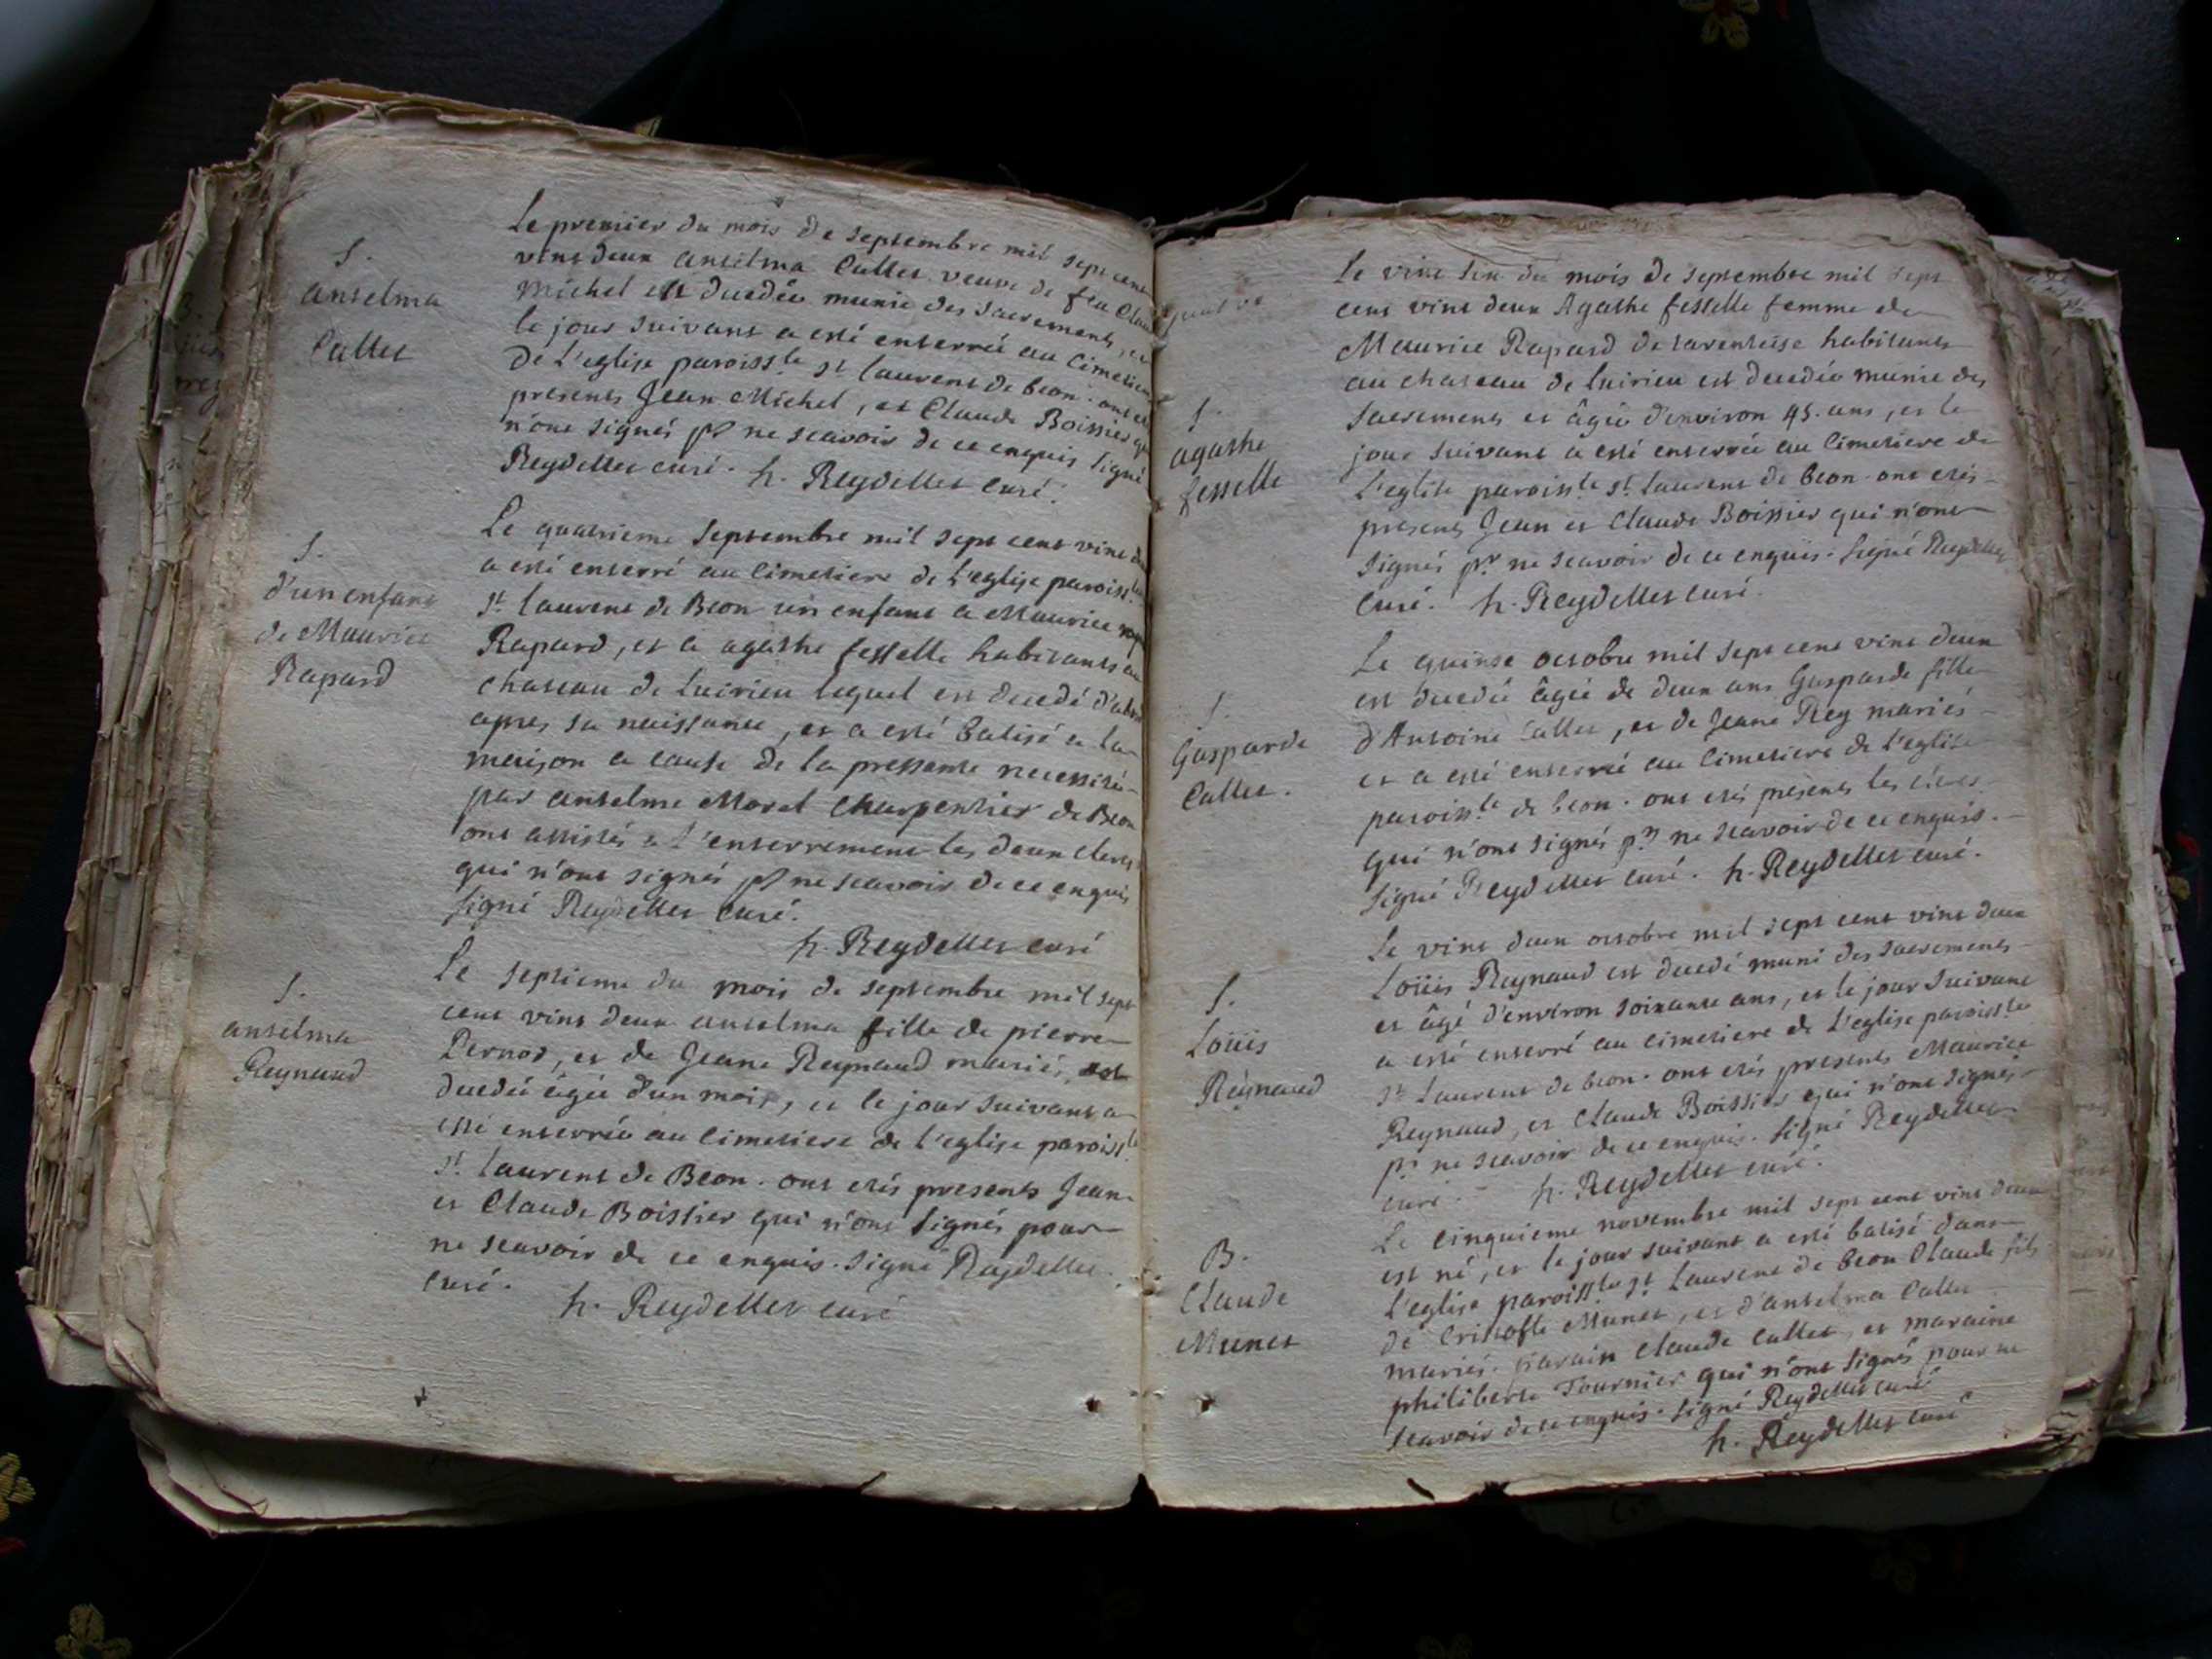 S.
anselma
Callet
Le premier du mois de septembre mil sept cent
vint deux anselma Callet veuve de feu Claude
Michel est decedée munie des sacrements, et
le jour suivant a esté enterrée au cimetiere
de L'eglise paroiss.le st laurent de beon. ont etés
presents Jean Michel, et Claude Boissier qui
n'ont signés pr ne scavoir de ce enquis signé
Reydellet curé. h. Reydellet curé.
S.
d'un enfant
de Maurice
Rapard
Le quatrieme septembre mil sept cent vint
a esté enterré au cimetiere de L'eglise paroiss.le
st. laurent de Beon un enfant a Maurice
Rapard, et a agathe fesselle habitants au
chateau de luirieu lequel est decedé d'abord
apres sa naissance, et a esté batisé a la
maison a cause de la pressente necessité
par anselme Morel charpentier de Beon
ont assistés a L'enterrement les deux clercs
qui n'ont signés pr ne scavoir de ce enquis
signé Reydellet curé.
h. Reydellet curé
S.
anselma
Reynaud
Le septieme du mois de septembre mil sept
cent vint deux anselma fille de pierre
Pernod, et de Jeane Reynaud mariés, est
decedée âgée d'un mois, et le jour suivant a
esté enterrée au cimetiere de l'eglise paroiss.le
st. laurent de Beon. ont etés presents Jean
et Claude Boissier qui n'ont signés pour
ne scavoir de ce enquis. signé Reydellet
curé. h. Reydellet curé
S.
agathe
fesselle
Le vint six du mois de septembre mil sept
cent vint deux Agathe fesselle femme de
Maurice Rapard de tarenteise habitants
au chateau de luirieu est decedée munie des
sacrements et âgée d'environ 45. ans, et le
jour suivant a esté enterrée au cimetiere de
L'eglise paroiss.le st. laurent de beon. ont etés
presents Jean et Claude Boissier qui n'ont
signés pr ne scavoir de ce enquis. signé Reydellet
curé. h. Reydellet curé.
S.
Gasparde
Callet.
Le quinse octobre mil sept cent vint deux
est decedée âgée de deux ans Gasparde fille
d'Antoine Callet, et de Jeane Rey mariés
et a esté enterrée au cimetiere de l'eglise
paroiss.le de beon. ont etés presents les clercs
qui n'ont signés pr ne scavoir de ce enquis.
signé Reydellet curé. h. Reydellet curé.
S.
Loüis
Reynaud
Le vint deux octobre mil sept cent vint deux
Loüis Reynaud est decedé muni des sacrements
et âgé d'environ soixante ans, et le jour suivant
a esté enterré au cimetiere de L'eglise paroissle
st. laurent de beon. ont etés presents Maurice
Reynaud, et Claude Boissier qui n'ont signés
pr ne scavoir de ce enquis. signé Reydellet
curé. h. Reydellet curé.
B.
Claude
Munet
Le cinquieme novembre mil sept cent vint deux
est né, et le jour suivant a esté batisé dans
L'eglise paroissle st laurent de beon Claude fils
de Cristofle Munet, et d'anselma Callet
mariés. parain Claude Callet, et maraine
philiberte Fournier qui n'ont signés pour ne
scavoir de ce enquis. signé Reydellet curé
h. Reydellet curé